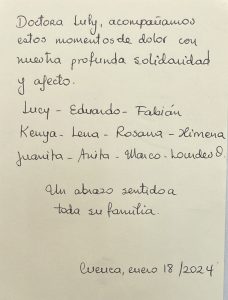 Doctora Luly, acompañamos
estos momentos de dolor con
nuestra profunda solidaridad
y afecto.
Lucy - Eduardo - Fabián
Kenya - Lena - Rosana - Ximena
Juanita - Anita - Marco - Lourdes O.
Un abrazo sentido a
toda su familia.
Cuenca, enero 18/2024